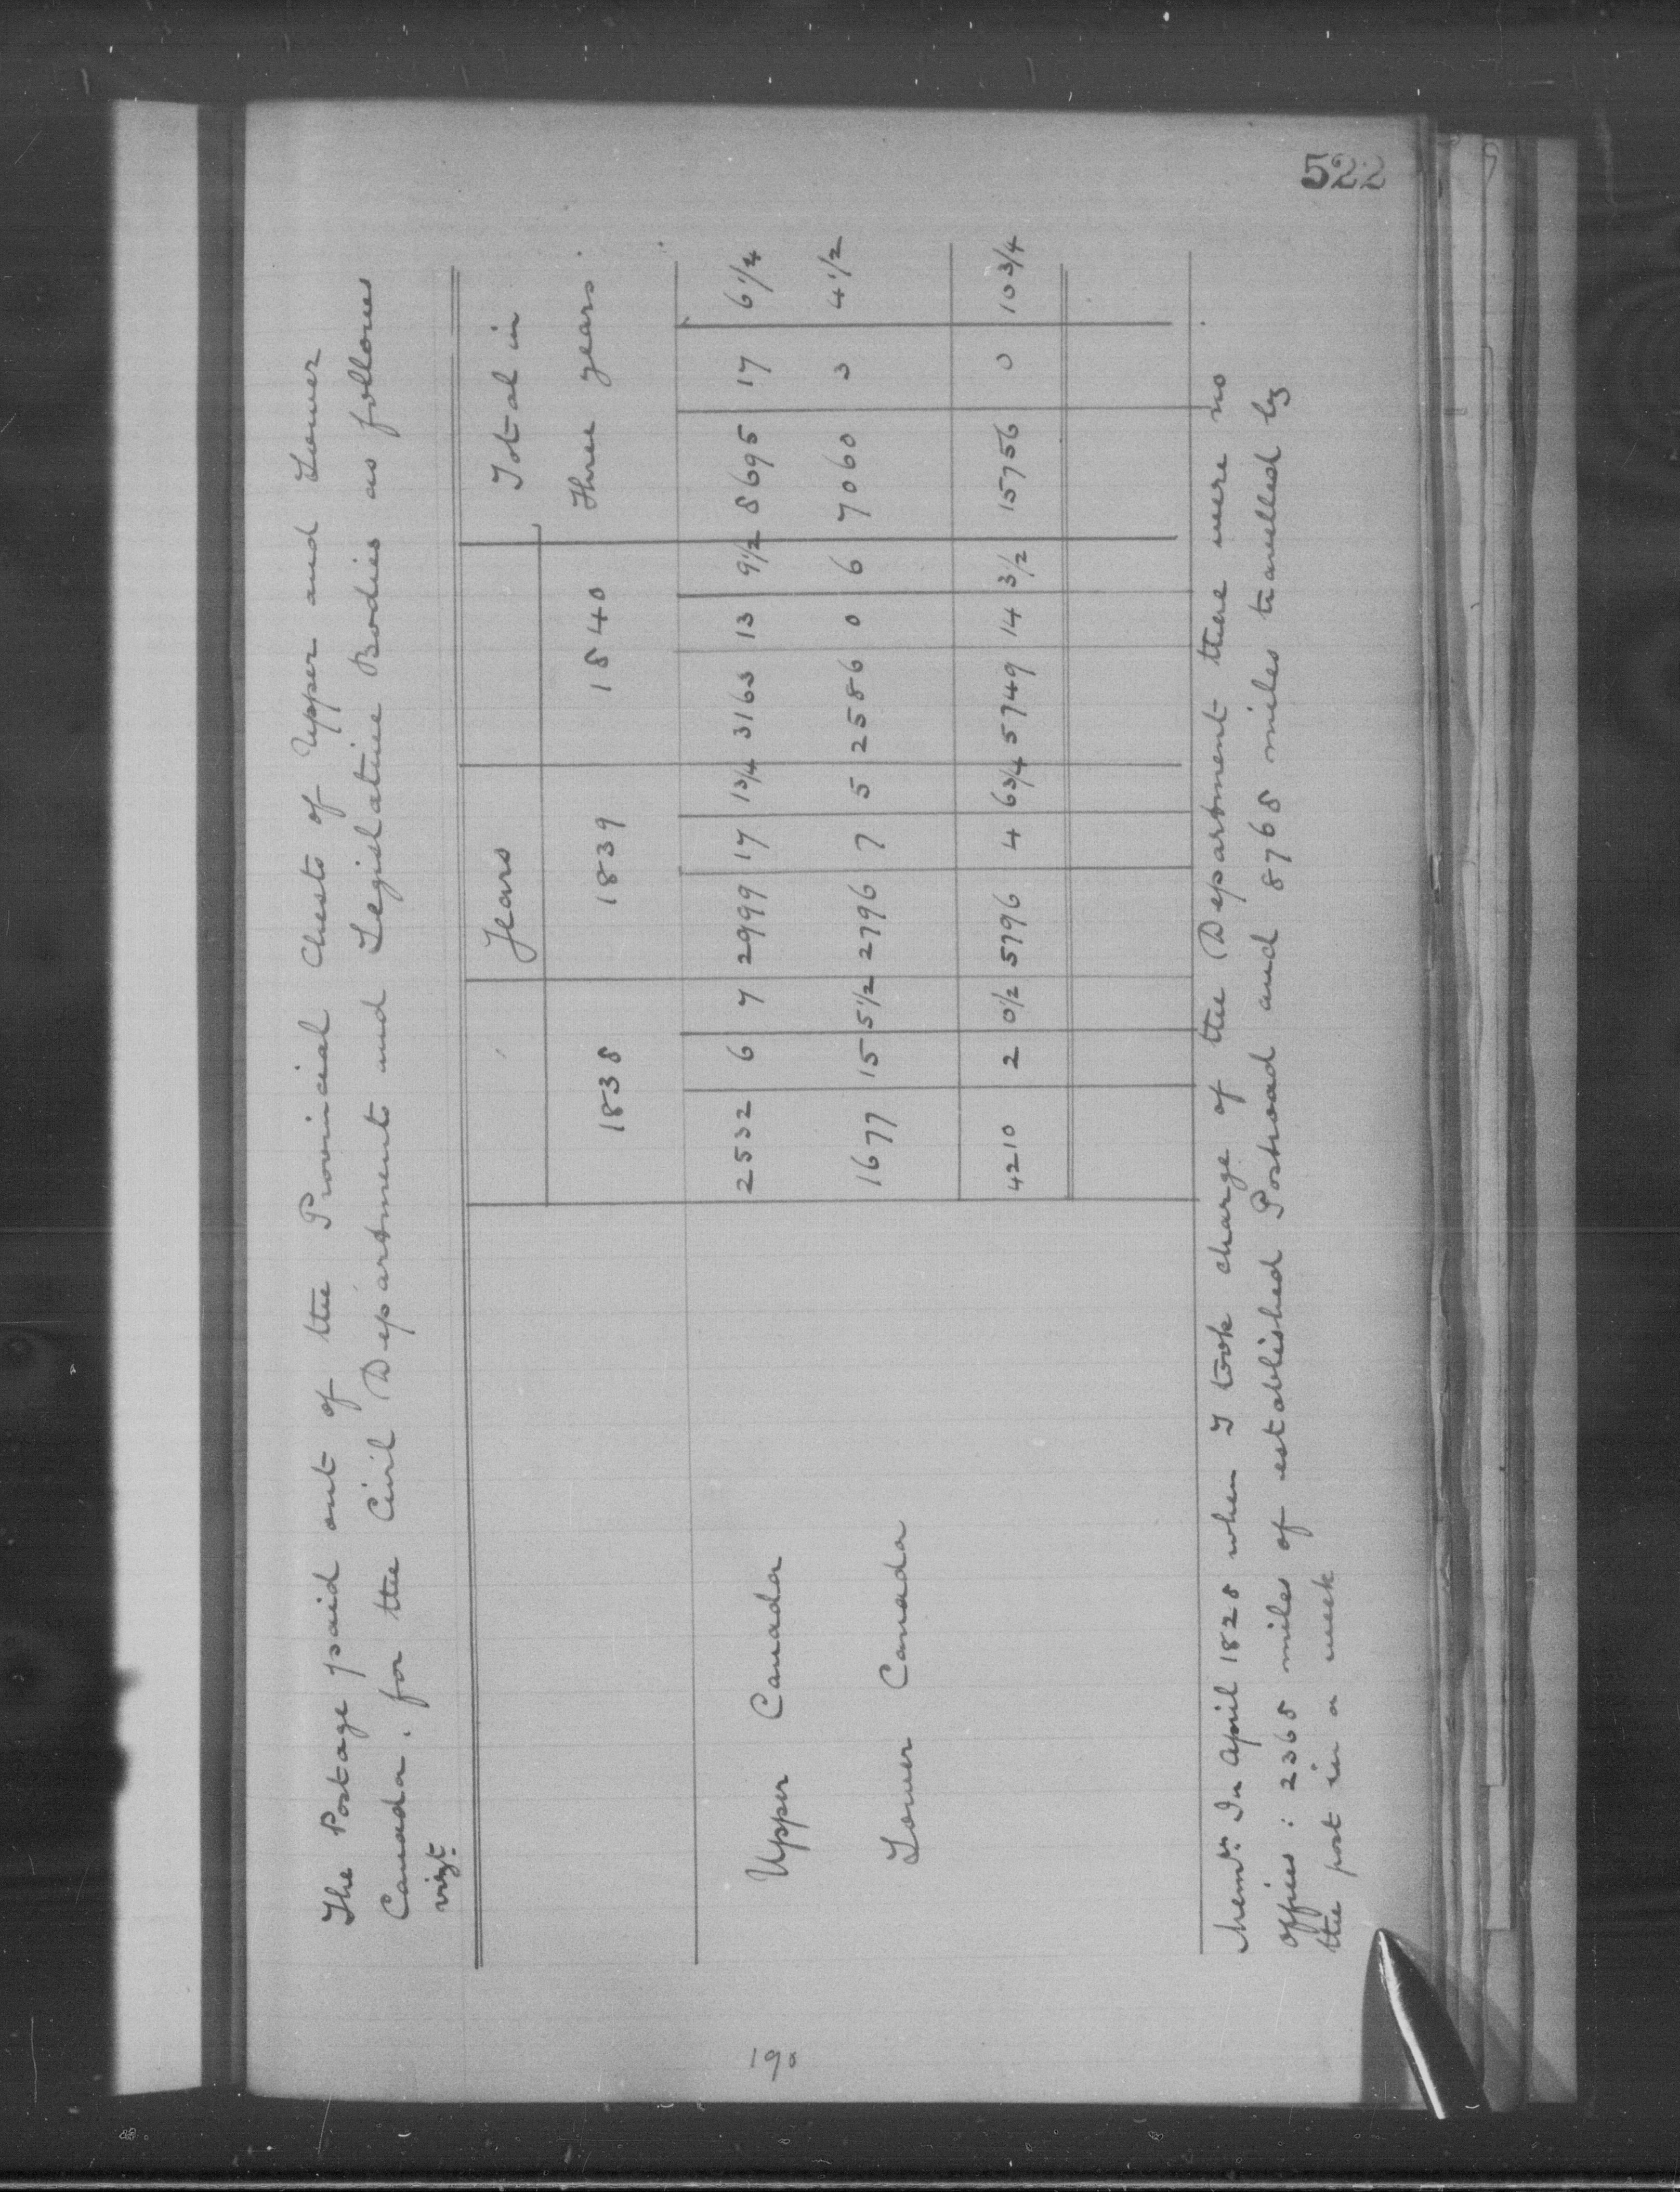 522
The Postage paid out of the Provincial Chests of Upper and Lower
Canada. for the Civil Department and Legislative Bodies as follows
vizt
Years
Total in
1838 1839 1840 Three years.
2532 6 7 2999 17 1 3/4 3163 13 9 1/2 8695 17 6 1/4
Upper Canada
1677 15 5 1/2 2796 7 5 2586 0 6 7060 3 4 1/2
Lower Canada
4210 2 0 1/2 5796 4 6 3/4 5749 14 3 1/2 15756 0 10 3/4
Memdm In April 1828 when I took charge of the Department there were no
offices : 2368 miles of established Postroad and 8768 miles travelled by
the post in a week
190